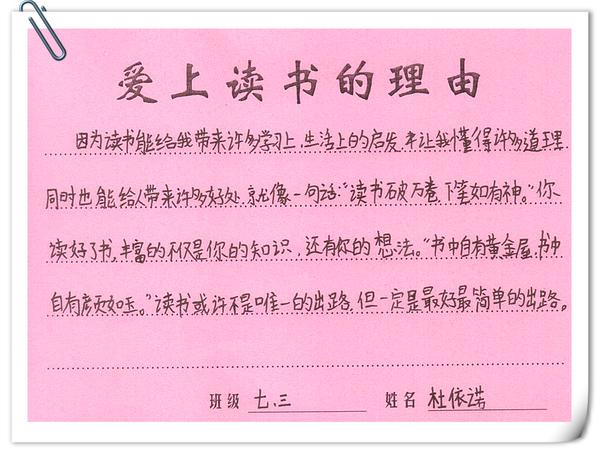 爱上读书的理由
因为读书能给我带来许多学习上,生活上的启发,并让我懂得许多道理.
同时也能给人带来许多好处,就像一句话:“读书破万卷,下笔如有神。”你
读好了书,丰富的不仅是你的知识,还有你的想法。“书中自有黄金屋,书中
自有颜如玉。”读书或许不是唯一的出路,但一定是最好最简单的出路。
班级 七.三 姓名 杜依诺